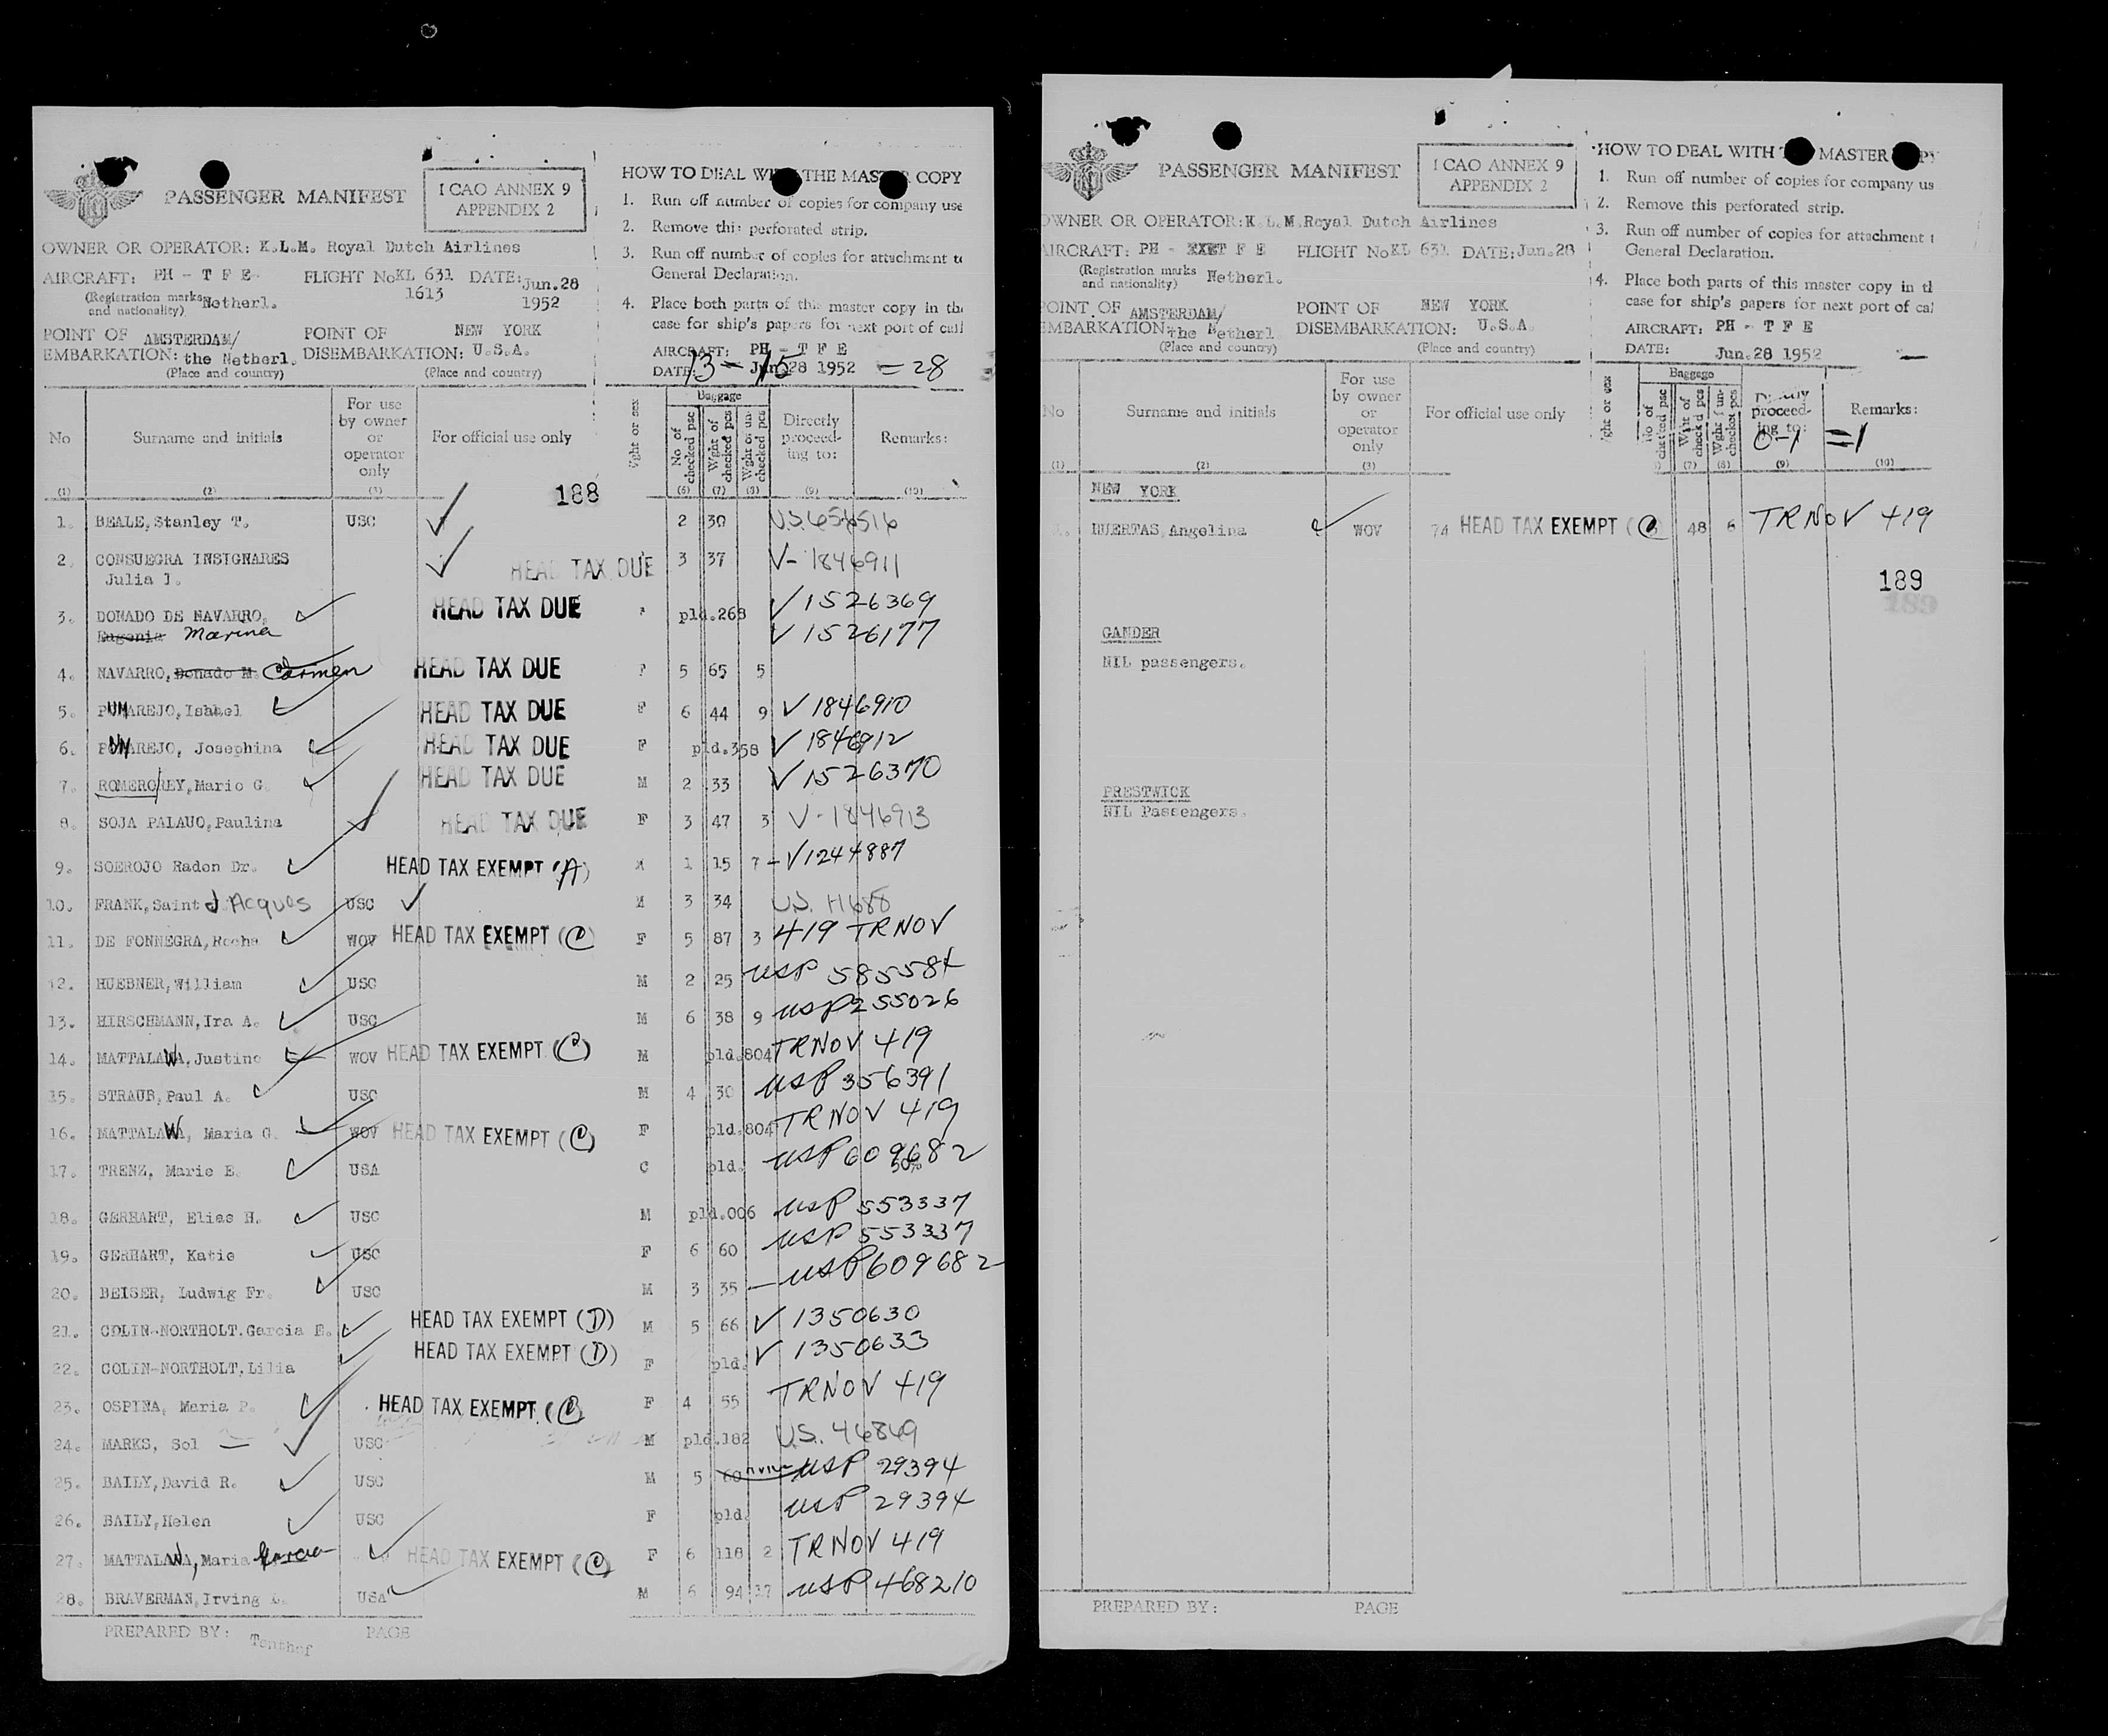 PASSENGER MANIFEST
I CAO ANNEX 9
APPENDIX 2
OWNER OR OPERATOR: K.L.M. Royal Dutch Airlines
AIRCRAFT: PH - T F E FLIGHT No KL 631 DATE: Jun.28
1613 1952
(Registration marks and nationality) Netherl.
POINT OF EMBARKATION: AMSTERDAM/ the Netherl. POINT OF DISEMBARKATION: NEW YORK U.S.A.
(Place and country) (Place and country)
HOW TO DEAL WITH THE MASTER COPY
1. Run off number of copies for company use
2. Remove this perforated strip.
3. Run off number of copies for attachment to
General Declaration.
4. Place both parts of this master copy in the
case for ship's papers for next port of call
AIRCRAFT: PH - T F E
DATE: Jun.28 1952
13 - 15 = 28
No Surname and initials For use by owner or operator only For official use only Wght or sex Baggage No of checked psc Wght of checked pcs Wght of un-checked pcs Directly proceed-ing to: Remarks:
(1) (2) (3) (6) (7) (8) (9) (10)
188
1. BEALE, Stanley T. USC 2 30 U.S. 656516
2. CONSUEGRA INSIGNARES HEAD TAX DUE 3 37 V- 1846911
Julia I.
3. DONADO DE NAVARRO, HEAD TAX DUE F pld.268 V 1526369
Eugenia Marina V 1526177
4. NAVARRO, Donado M. Carmen HEAD TAX DUE F 5 65 5
5. PUMAREJO, Isabel HEAD TAX DUE F 6 44 9 V 1846910
6. PUMAREJO, Josephina HEAD TAX DUE F pld.358 V 1846912
7. ROMERO REY, Mario G. HEAD TAX DUE M 2 33 V 1526370
8. SOJA PALAUO, Paulina HEAD TAX DUE F 3 47 3 V-1846913
9. SOEROJO Raden Dr. HEAD TAX EXEMPT (A) M 1 15 7 - V1244887
10. FRANK, Saint JAcques USC M 3 34 U.S. 11688
11. DE FONNEGRA, Rocha WOV HEAD TAX EXEMPT (C) F 5 87 3 419 TRNOV
12. HUEBNER, William USC M 2 25 USP 585584
13. HIRSCHMANN, Ira A. USC M 6 38 9 USP 255026
14. MATTALAWA, Justino WOV HEAD TAX EXEMPT (C) M pld.804 TRNOV 419
15. STRAUB, Paul A. USC M 4 30 USP 356391
16. MATTALAWA, Maria G. WOV HEAD TAX EXEMPT (C) F pld.804 TRNOV 419
17. TRENZ, Marie E. USA C pld. USP 609682
50%
18. GERHART, Elias H. USC M pld.006 USP 553337
19. GERHART, Katie USC F 6 60 USP 553337
20. BEISER, Ludwig Fr. USC M 3 35 - USP 609682
21. COLIN-NORTHOLT, Garcia E. HEAD TAX EXEMPT (D) M 5 66 V 1350630
22. COLIN-NORTHOLT, Lilia HEAD TAX EXEMPT (D) F pld. V 1350633
23. OSPINA, Maria P. HEAD TAX EXEMPT (C) F 4 55 TRNOV 419
24. MARKS, Sol USC M pld.182 U.S. 46869
25. BAILY, David R. USC M 5 60 USP 29394
26. BAILY, Helen USC F pld. USP 29394
27. MATTALANA, Maria Garcia HEAD TAX EXEMPT (C) F 6 118 2 TRNOV 419
28. BRAVERMAN, Irving USA M 6 94 37 USP 468210
PREPARED BY: Tenthof PAGE
PASSENGER MANIFEST
I CAO ANNEX 9
APPENDIX 2
OWNER OR OPERATOR: K.L.M. Royal Dutch Airlines
AIRCRAFT: PH - T F E FLIGHT No KL 631 DATE: Jun.28
(Registration marks and nationality) Netherl.
POINT OF EMBARKATION: AMSTERDAM/ the Netherl POINT OF DISEMBARKATION: NEW YORK U.S.A.
(Place and country) (Place and country)
HOW TO DEAL WITH MASTER
1. Run off number of copies for company us
2. Remove this perforated strip.
3. Run off number of copies for attachment t
General Declaration.
4. Place both parts of this master copy in th
case for ship's papers for next port of cal
AIRCRAFT: PH - T F E
DATE: Jun.28 1952
No Surname and initials For use by owner or operator only For official use only ght or sex Baggage No of checked psc Wght of checked pcs Wght of un-checked pcs proceed-ing to: Remarks:
0-1 = 1
(1) (2) (3) (7) (8) (9) (10)
NEW YORK
HUERTAS, Angelina WOV 74 HEAD TAX EXEMPT (C) 48 6 TRNOV 419
189
189
GANDER
NIL passengers.
PRESTWICK
NIL Passengers.
PREPARED BY: PAGE